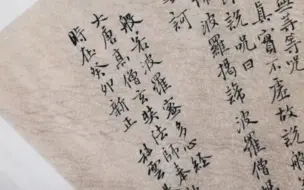 無等等呪
真實不虛故說般
說呪曰
波羅揭諦波羅僧
訶
般若波羅蜜多心經
大唐高僧玄奘法師奉
時在癸卯新正